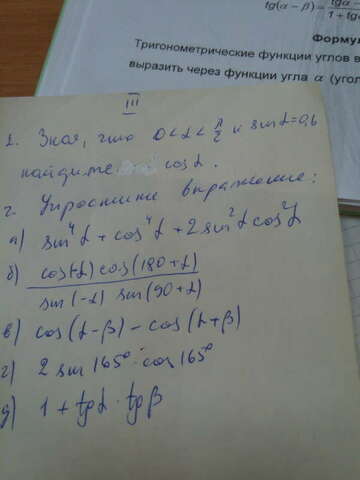 tg(α − β) = tgα −
1 + tg
Форму
Тригонометрические функции углов в
выразить через функции угла α (угол
III
1. Зная, что 0 < α < π/2 и sin α = 0,6
найдите cos α.
2. Упростите выражение:
а) sin⁴α + cos⁴α + 2 sin²α cos²α
б) cos(-α) cos(180+α)
sin(-α) sin(90+α)
в) cos(α-β) - cos(α+β)
г) 2 sin 165° · cos 165°
д) 1 + tgα · tgβ